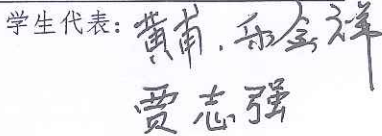 学生代表：黄甫，乐金祥
贾志强